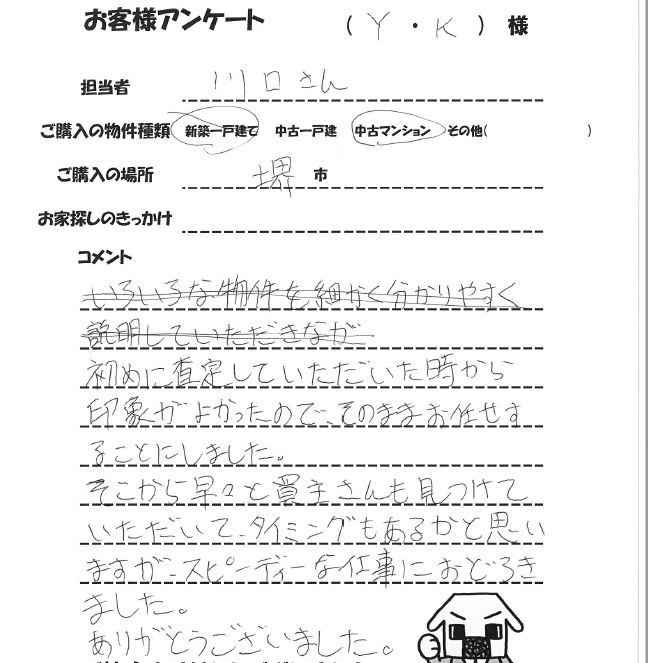 お客様アンケート （Y・K）様
担当者 川口さん
ご購入の物件種類 新築一戸建て 中古一戸建 中古マンション その他（ ）
ご購入の場所 堺 市
お家探しのきっかけ
コメント
いろいろな物件を細かく分かりやすく
説明していただきながら
初めに査定していただいた時から
印象がよかったので、そのままお任せす
ることにしました。
そこから早々と買主さんも見つけて
いただいて、タイミングもあるかと思い
ますが、スピーディーな仕事におどろき
ました。
ありがとうございました。